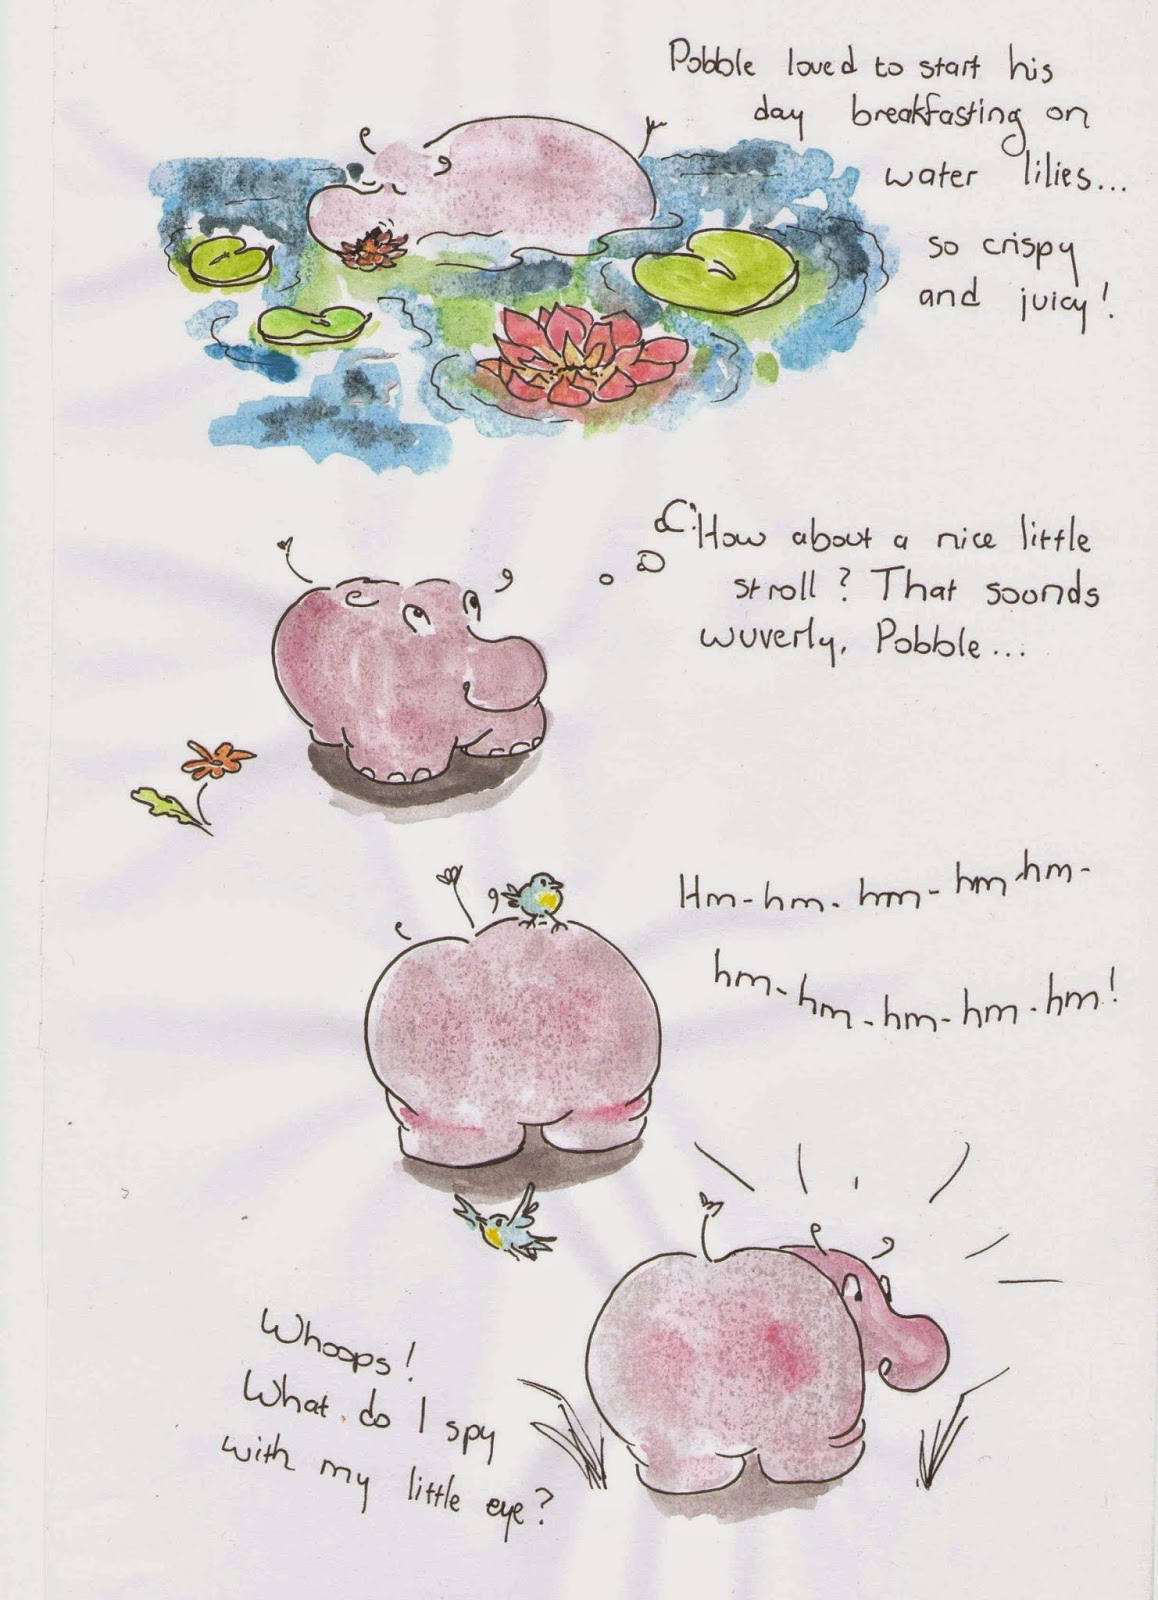 Pobble loved to start his
day breakfasting on
water lilies...
so crispy
and juicy!
How about a nice little
stroll? That sounds
wuverly, Pobble...
Hm-hm-hm-hm hm-
hm-hm-hm-hm-hm!
Whoops!
What do I spy
with my little eye?